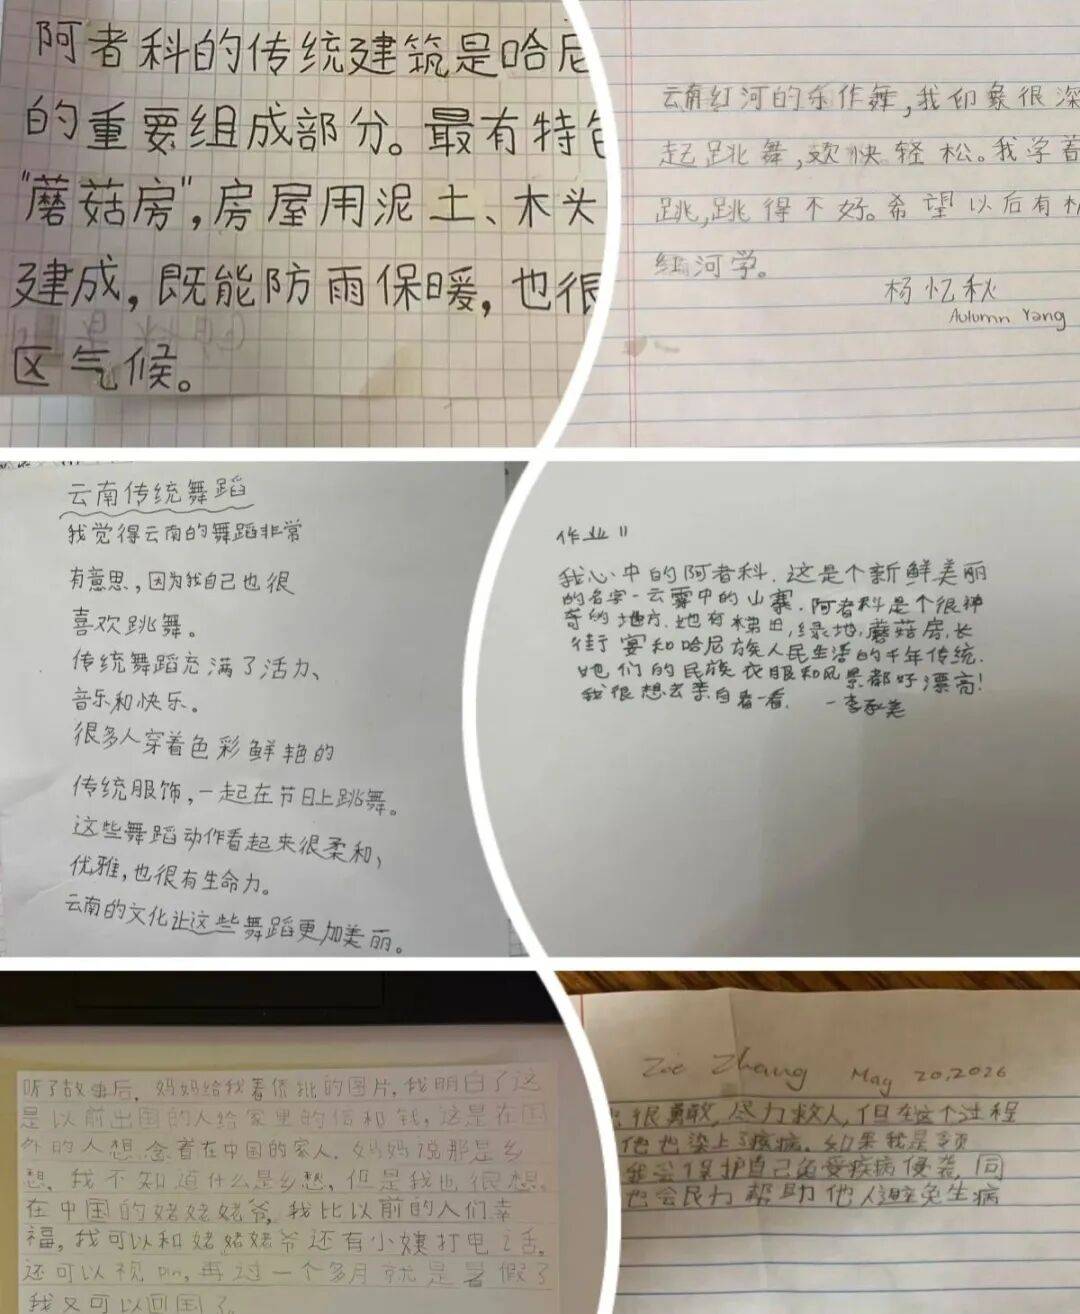 阿者科的传统建筑是哈尼
的重要组成部分。最有特色
"蘑菇房",房屋用泥土、木头
建成,既能防雨保暖,也很
区气候。
云南红河的乐作舞,我印象很深
起跳舞,欢快轻松。我学着
跳,跳得不好。希望以后有机
红河学。
杨忆秋
Autumn Yang
云南传统舞蹈
我觉得云南的舞蹈非常
有意思,因为我自己也很
喜欢跳舞。
传统舞蹈充满了活力、
音乐和快乐。
很多人穿着色彩鲜艳的
传统服饰,一起在节日上跳舞。
这些舞蹈动作看起来很柔和,
优雅,也很有生命力。
云南的文化让这些舞蹈更加美丽。
作业11
我心中的阿者科. 这是个新鲜美丽
的名字-云雾中的山寨.阿者科是个很神
奇的地方.地有梯田,绿地,蘑菇房,长
街宴和哈尼族人民生活的千年传统.
她们的民族衣服和风景都好漂亮!
我很想去亲自看一看. -李承美
听了故事后,妈妈给我看侨批的图片,我明白了这
是以前出国的人给家里的信和钱,这是在国
外的人想念着在中国的家人.妈妈说那是乡
愁,我不知道什么是乡愁,但是我也很想
在中国的姥姥姥爷,我比以前的人们幸
福,我可以和姥姥姥爷还有小姨打电话,
还可以视pin,再过一个多月就是暑假了
我又可以回国了。
Zoe Zhang May 20,2026
很勇敢,尽力救人,但在这个过程
他也染上了疾病.如果我是
我会保护自己免受疾病侵袭,同
也会尽力帮助他人避免生病